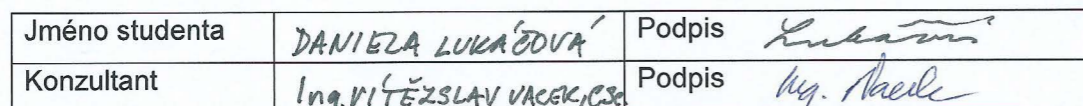 Jméno studenta DANIELA LUKÁČOVÁ Podpis Lukáčová
Konzultant Ing. VÍTĚZSLAV VACEK, CSc Podpis Ing. Vacek